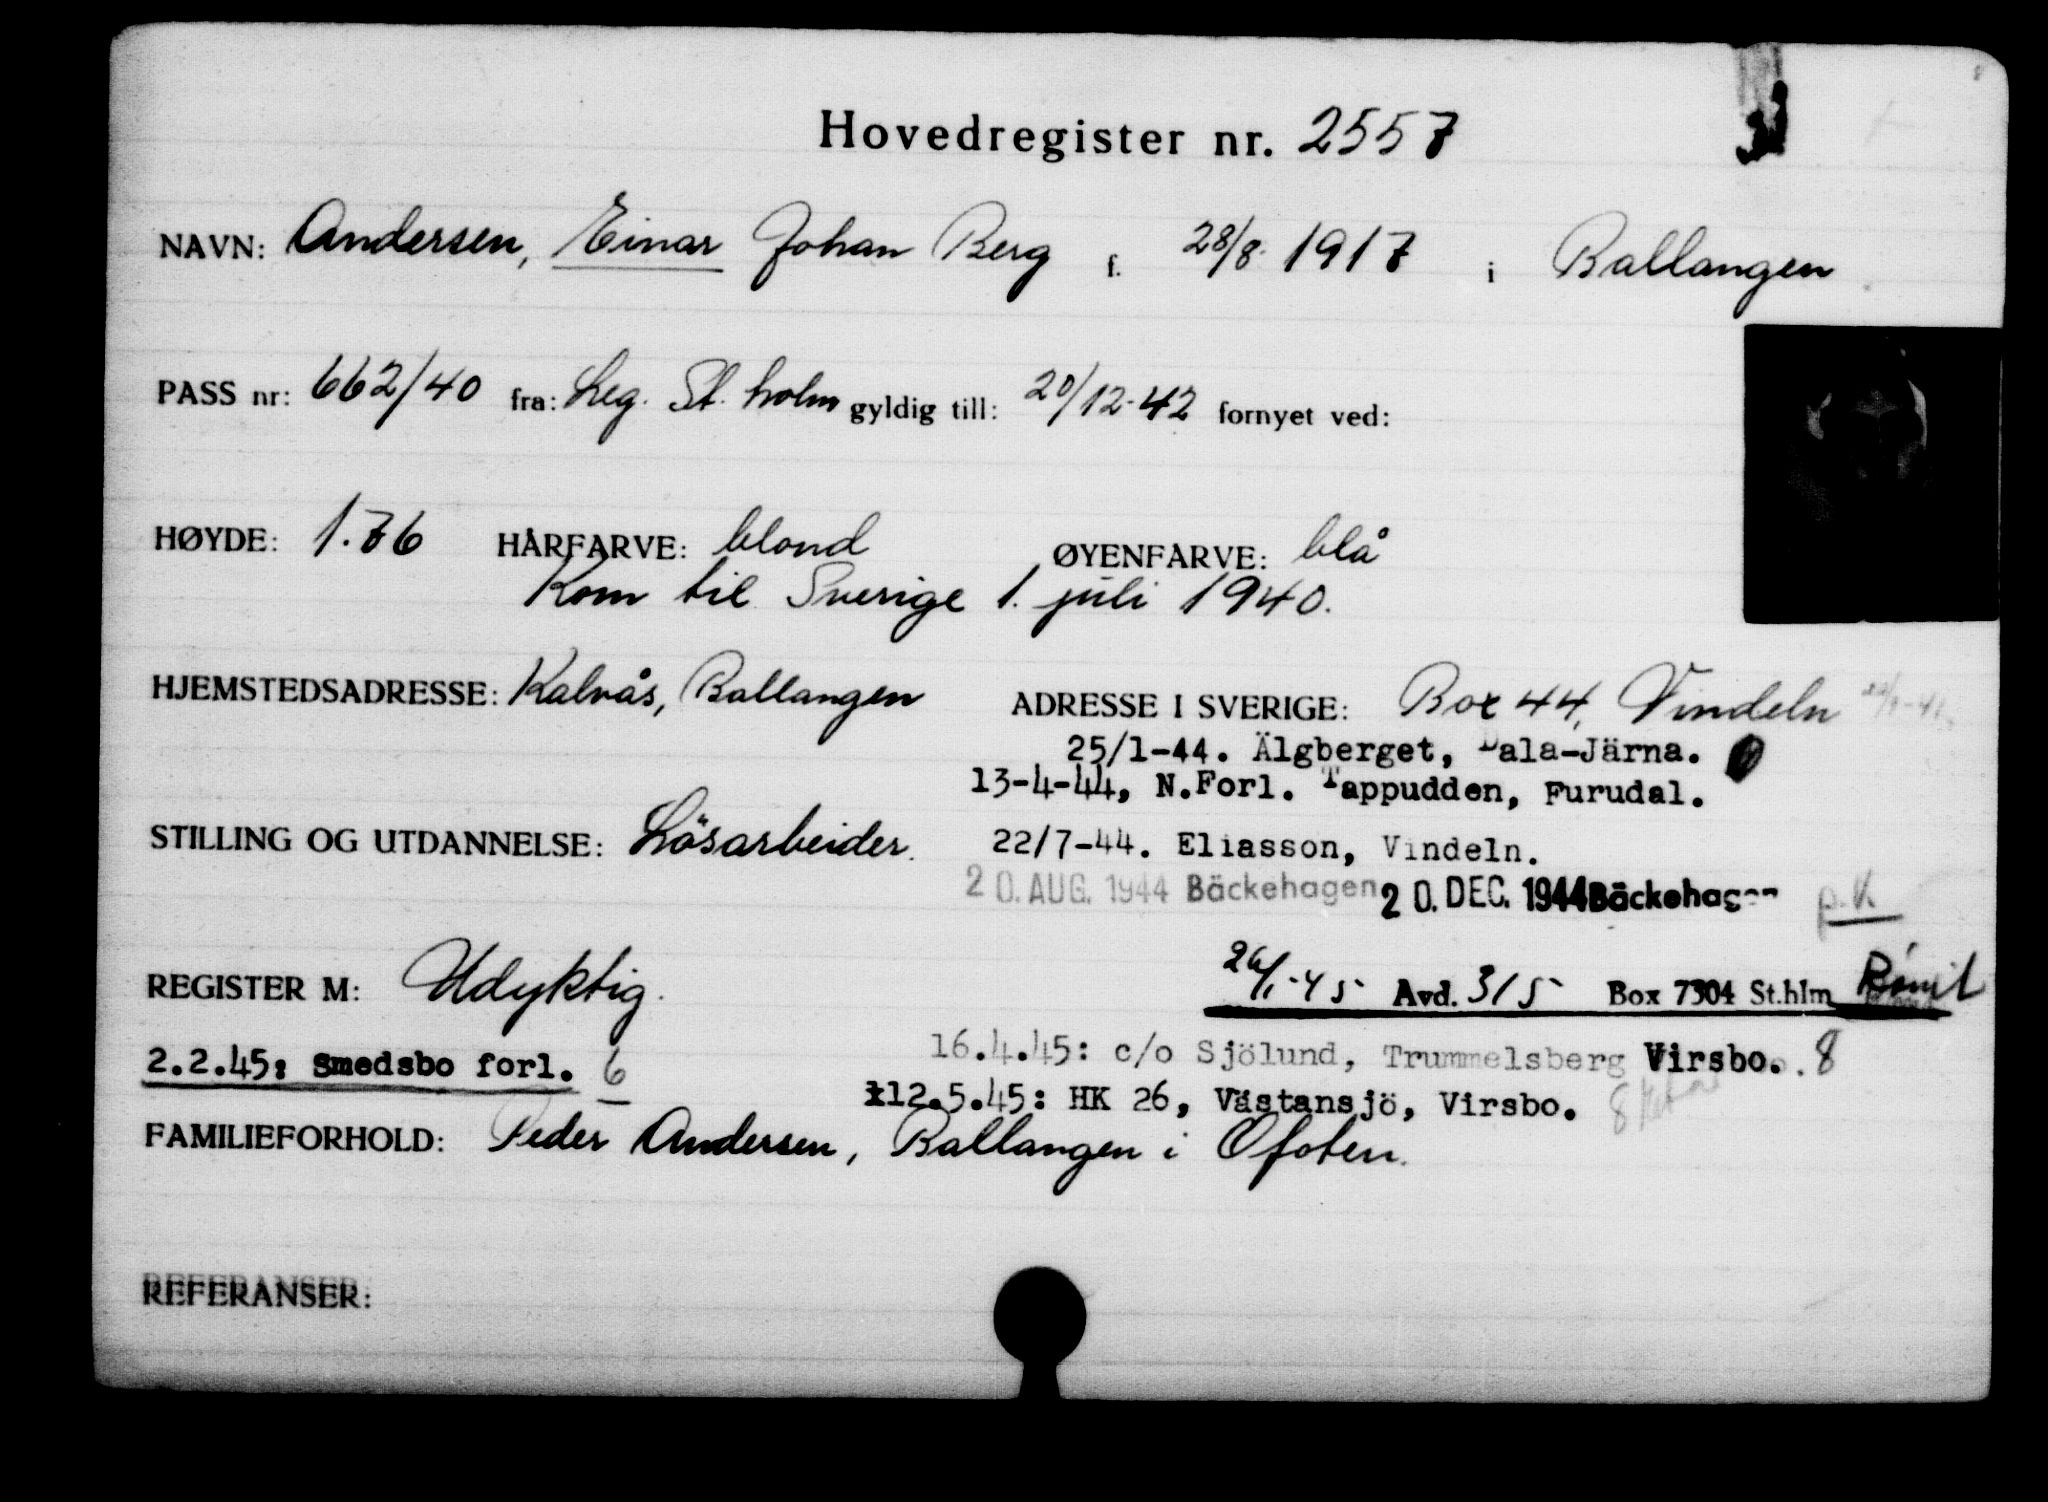 Hovedregister nr. 2557
NAVN: Andersen, Einar Johan Berg f. 28/8. 1917 i Ballangen
PASS nr: 662/40 fra: Leg. St. holm gyldig till: 20/12-42 fornyet ved:
HØYDE: 1.76 HÅRFARVE: blond ØYENFARVE: blå
Kom til Sverige 1. juli 1940.
HJEMSTEDSADRESSE: Kalvås, Ballangen ADRESSE I SVERIGE: Box 44, Vindeln
25/1-44. Älgberget, Dala-Järna.
13-4-44, N.Forl. Tappudden, Furudal.
STILLING OG UTDANNELSE: Lösarbeider. 22/7-44. Eliasson, Vindeln.
20. AUG. 1944 Bäckehagen 20. DEC. 1944 Bäckehagen p.k.
REGISTER M: Udyktig. 26/1-45 Avd. 315 Box 7304 St.hlm
2.2.45: Smedsbo forl. 6 16.4.45: c/o Sjölund, Trummelsberg Virsbo. 8
12.5.45: HK 26, Västansjö, Virsbo. 8
FAMILIEFORHOLD: Peder Andersen, Ballangen i Ofoten.
REFERANSER: